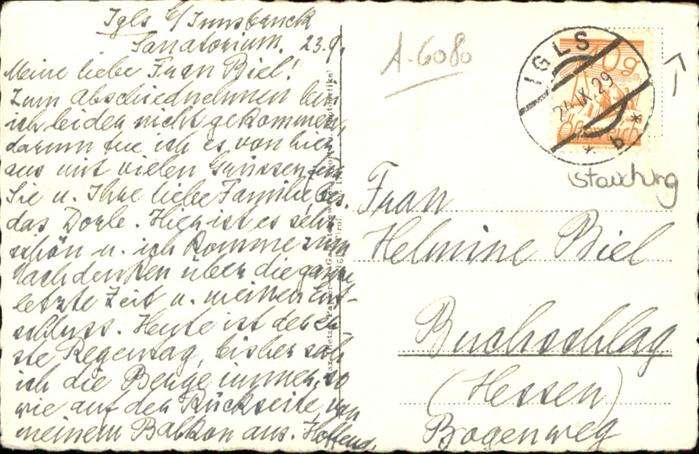 Igls b/Innsbruck
Sanatorium. 23.9.
Meine liebe Frau Biel!
Zum Abschiednehmen bin
ich leider nicht gekommen,
darum tue ich es von hier
aus mit vielen Grüssen für
Sie u. Ihre liebe Familie bes.
das Dorle. Hier ist es sehr
schön u. ich komme zum
Nachdenken über die ganze
letzte Zeit u. meinen Ent-
schluss. Heute ist der er-
ste Regentag, bisher sah
ich die Berge immer, so
wie auf der Rückseite, von
meinem Balkon aus. Hoffend.
A-6080
IGLS
24.IX.29
* b *
10g
Österreich
Stauchung
Frau
Helmine Biel
Buchschlag
(Hessen)
Bogenweg